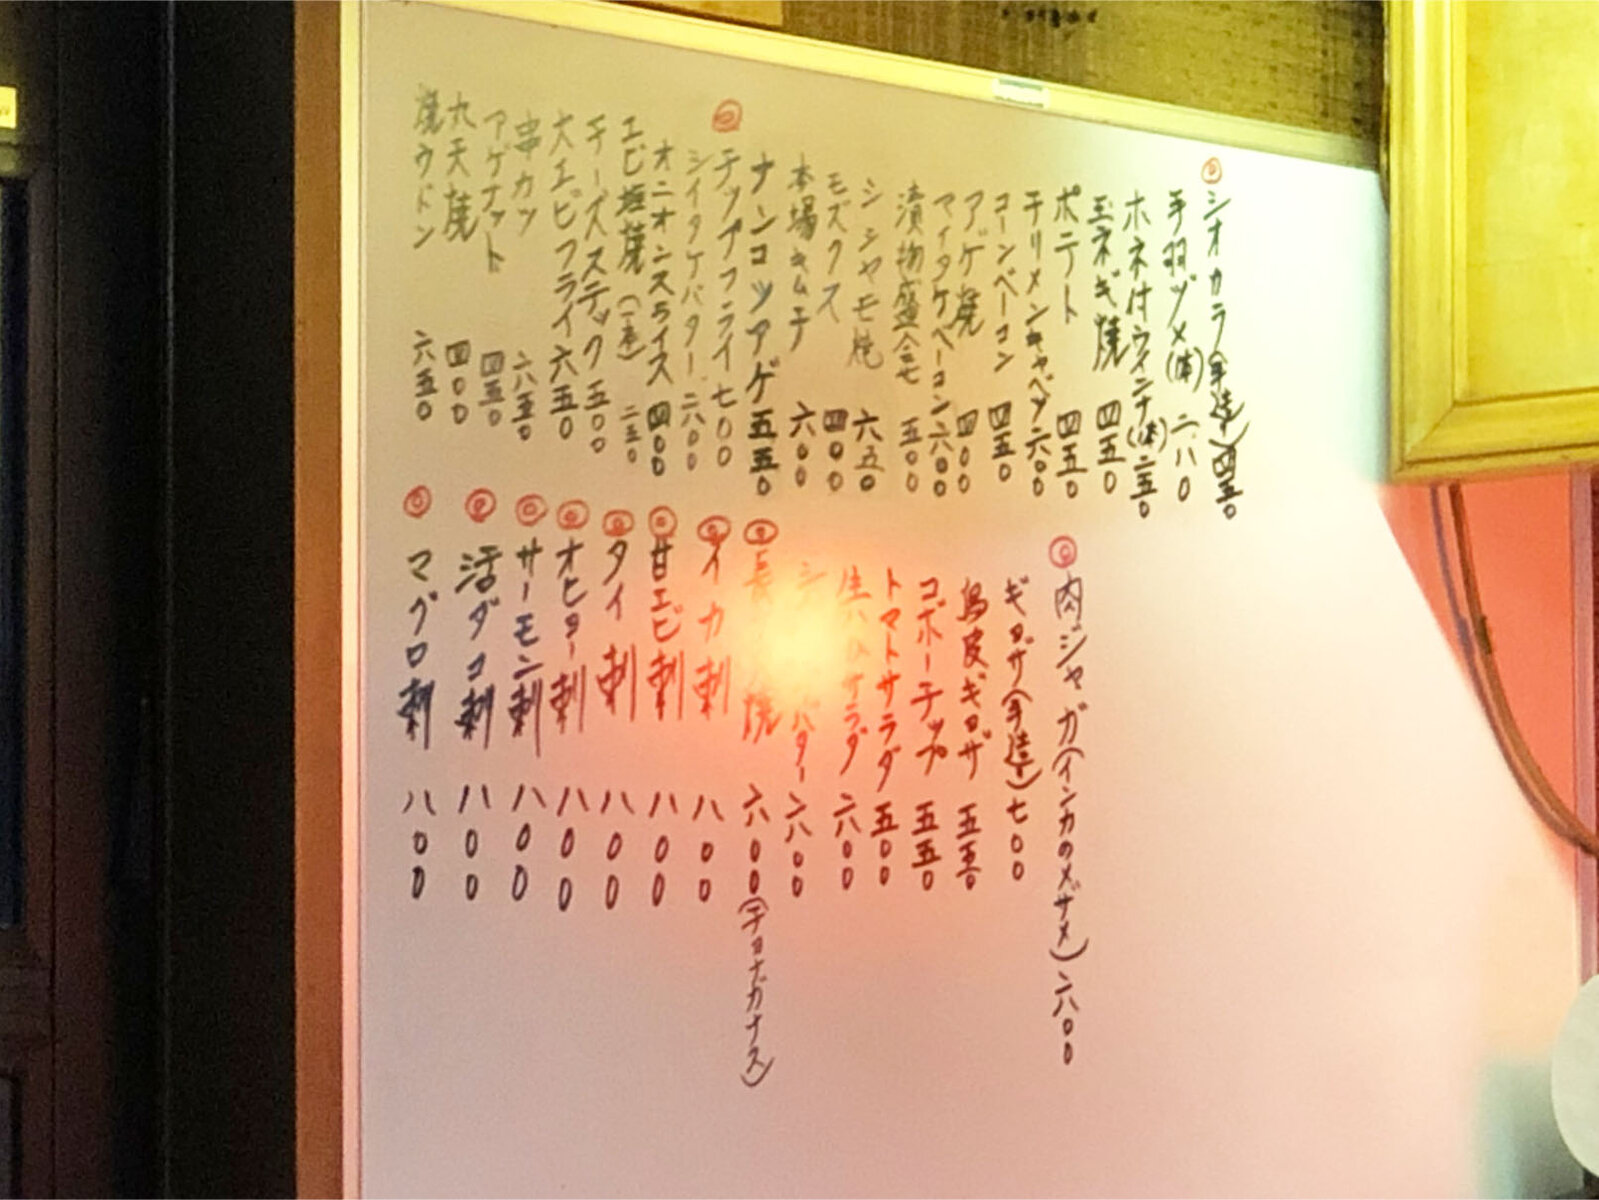 ◎シオカラ(手造)四五〇
手羽ヅメ(一本)二八〇
ホネ付ウインナ(一本)二五〇
玉ネギ焼 四五〇
ポテト 四五〇
チリメンキャベツ 六〇〇
コーンベーコン 四五〇
アゲ焼 四〇〇
マイタケベーコン 六〇〇
漬物盛合セ 五〇〇
シシャモ焼 六五〇
モズクス 四〇〇
本場キムチ 六〇〇
ナンコツアゲ 五五〇
◎チップフライ 七〇〇
シイタケバター 六〇〇
オニオンスライス 四〇〇
エビ塩焼(一本)二五〇
チーズステック 五〇〇
大エビフライ 六五〇
串カツ 六五〇
アゲナット 四五〇
九天焼 四〇〇
焼ウドン 六五〇
◎肉ジャガ(インカのメザメ)六〇〇
ギョーザ(手造)七〇〇
鳥皮ギョーザ 五五〇
コボーチップ 五五〇
トマトサラダ 五〇〇
生ハムサラダ 六〇〇
バター 六〇〇
◎長 焼 六〇〇(チョナカナス)
◎イカ刺 八〇〇
◎甘エビ刺 八〇〇
◎タイ刺 八〇〇
◎オヒョー刺 八〇〇
◎サーモン刺 八〇〇
◎活ダコ刺 八〇〇
◎マグロ刺 八〇〇